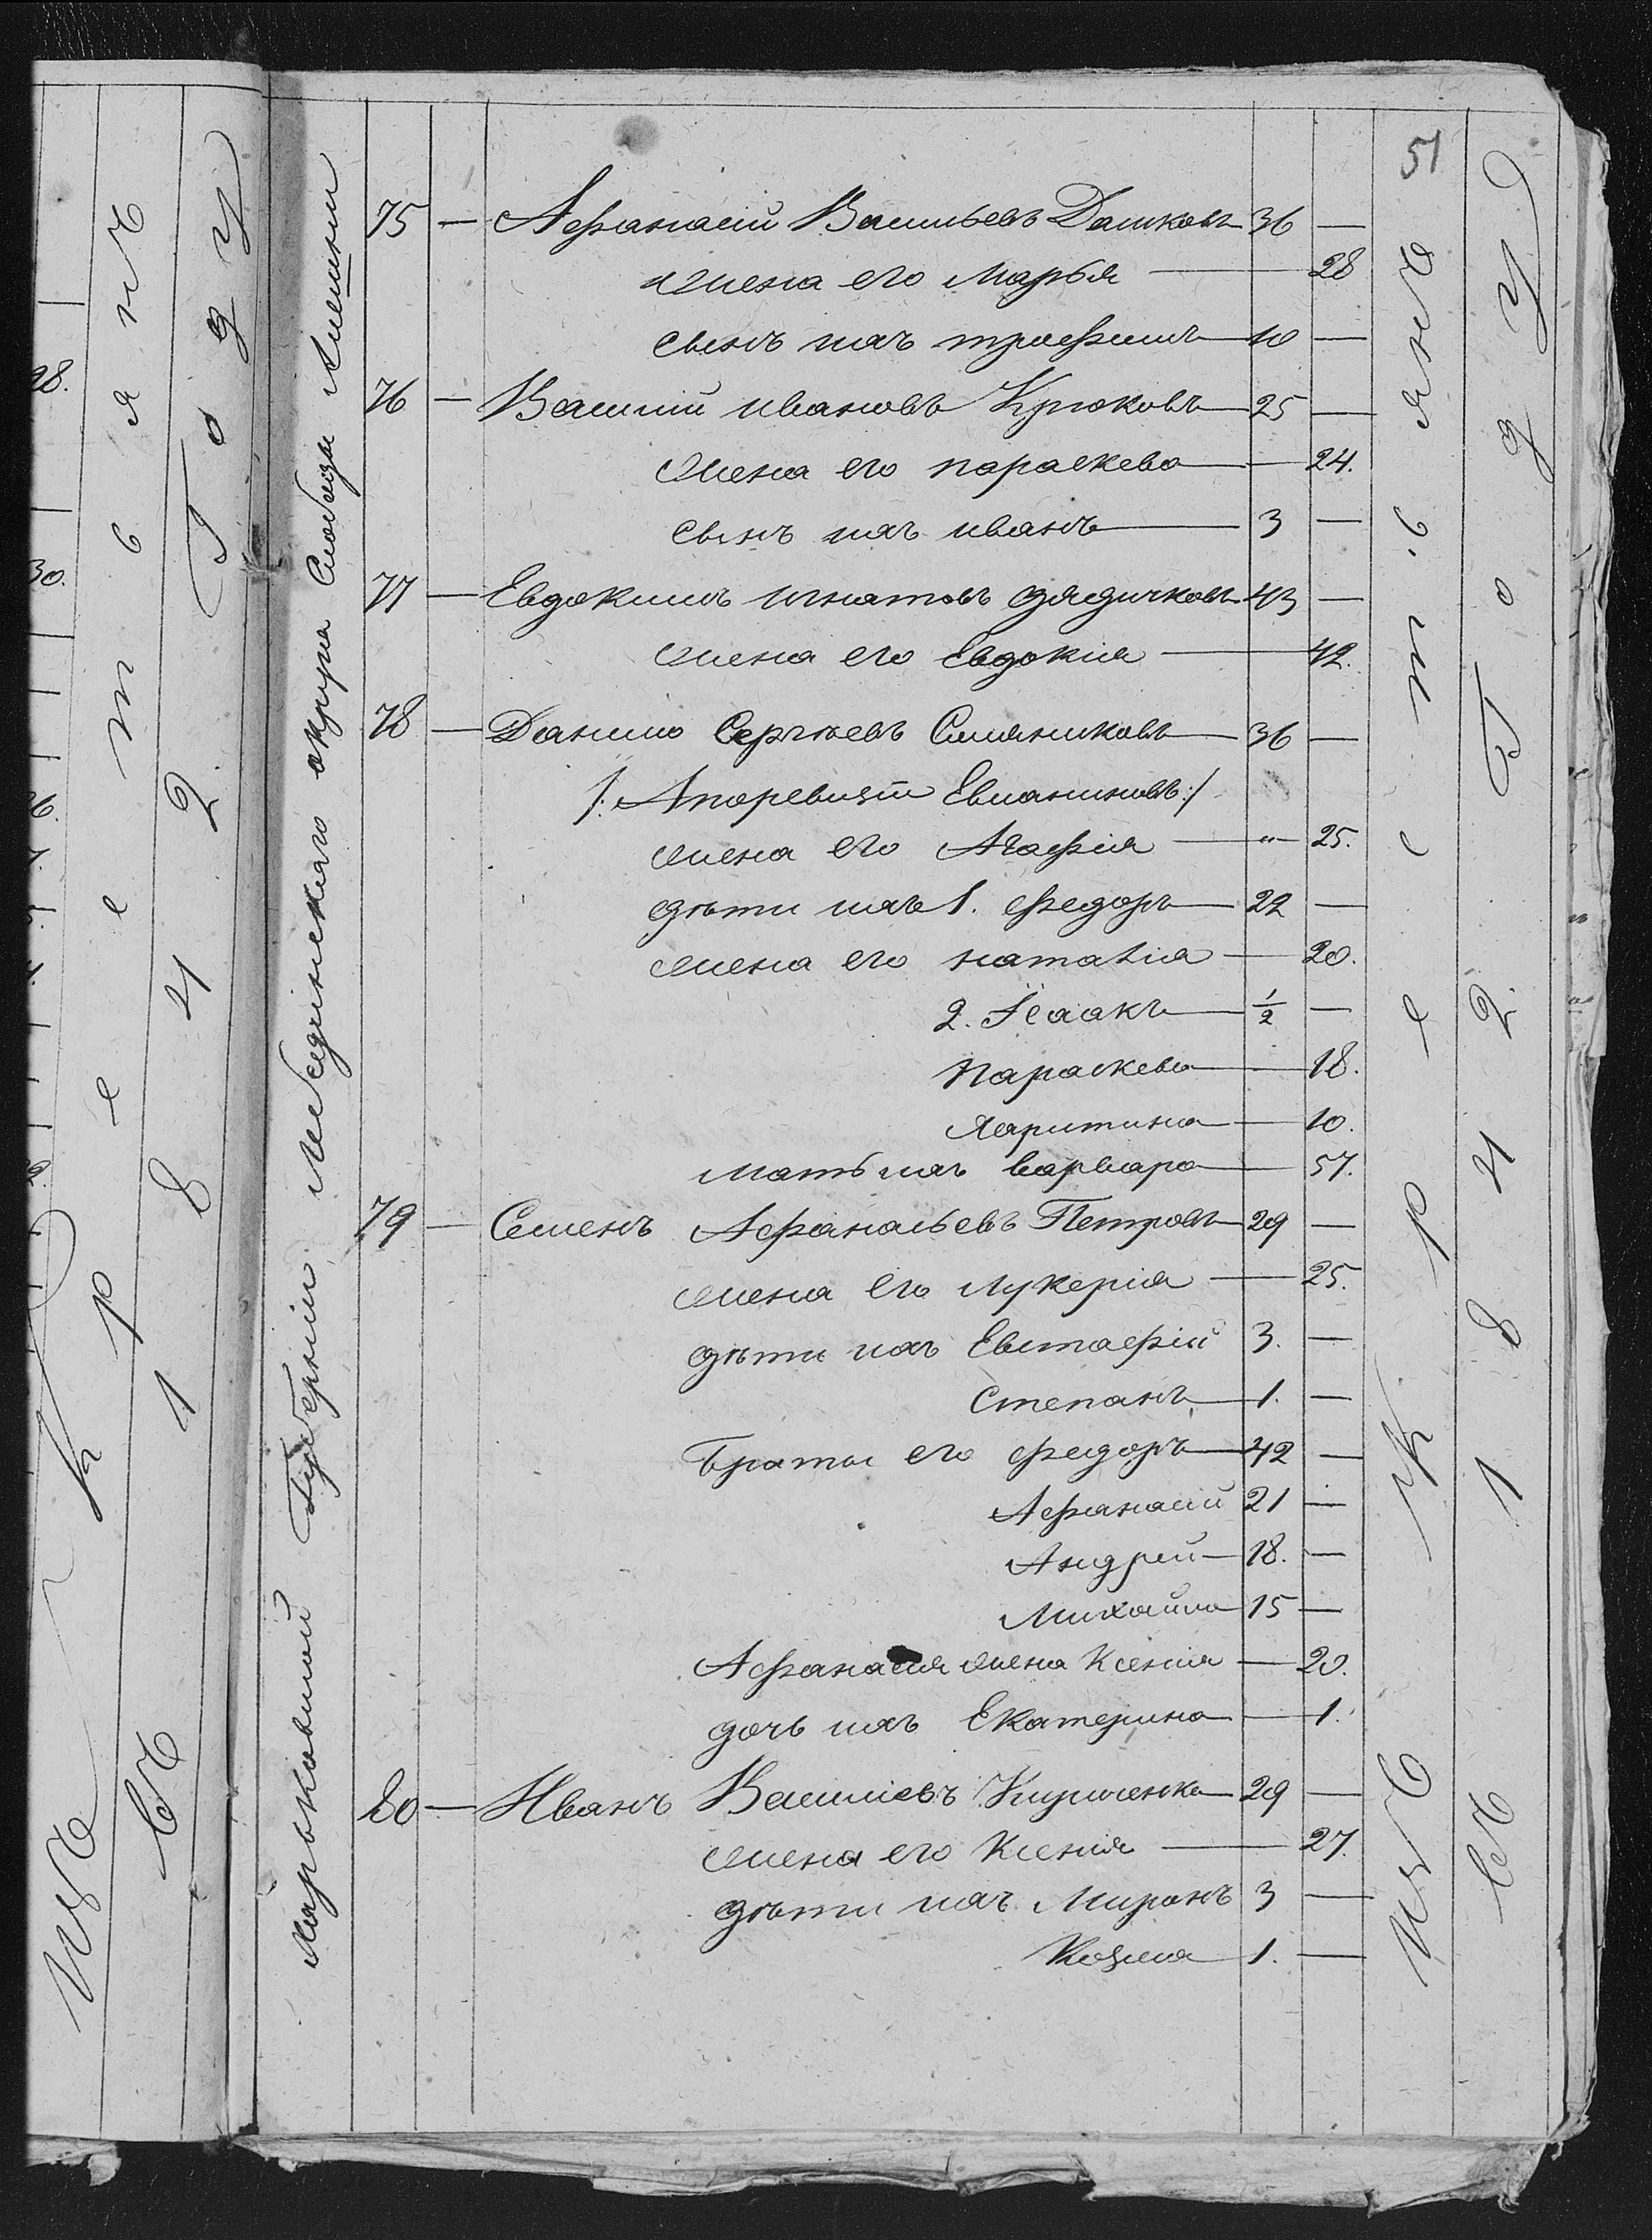 51
Харьковской Губерніи Лебединскаго округа Слободы Алешни
75 — Афанасій Васильевъ Дашковъ — 36 —
жена его Марья — 28
сынъ ихъ трофимъ — 10 —
76 — Василій ивановъ Крюковъ — 25 —
жена его параскева — 24.
сынъ ихъ иванъ — 3 —
77 — Евдокимъ игнатовъ дядичковъ — 43 —
жена его Евдокія — 42.
78 — Данило Сергѣевъ — 36 —
/: Апоревизіи :/
жена его Агафія — " — 25.
дѣти ихъ 1. федоръ — 22 —
жена его наталія — 20.
2. Ісаакъ — 1/2 —
Параскева — 18.
Харитина — 10.
мать ихъ варвара — 57.
79 — Семенъ Афанасьевъ Петровъ — 29 —
жена его лукерія — 25.
дѣти ихъ Евстафій 3. —
Степанъ — 1. —
Браты его федоръ — 42 —
Афанасій 21 —
Андрей — 18. —
Михайла — 15 —
Афанасія жена Ксенія — 20.
дочь ихъ Екатерина — 1.
80 — Иванъ Василіевъ Кириченко — 29 —
жена его Ксенія — 27.
дѣти ихъ Миронъ 3 —
Козма — 1. —
изъ Крестянъ
съ 1842 Году
28.
30.
изъ Крестянъ
съ 1842 Году